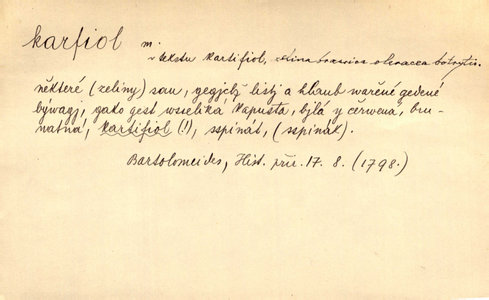 karfiol m.
v textu kartifiol, brassica oleracea botrytis.
některé (zeliny) sau, gegichž listj a hlaub wařené gedené
býwagj, gako gest wsseliká kapusta, bjlá y čerwená, bru-
natná, kartifiol (!), sspinát, (sspinák).
Bartolomeides, Hist. přir. 17. 8. (1798.)